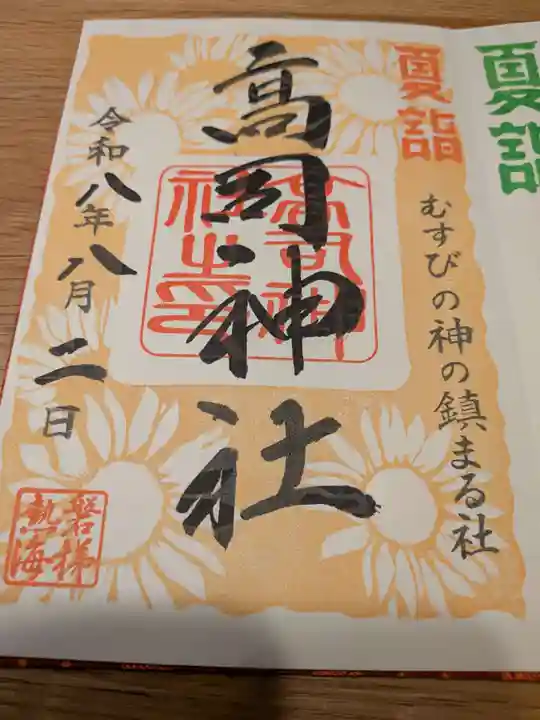 夏詣
夏詣
むすびの神の鎮まる社
高司神社
高司神
社之印
令和八年八月二日
磐梯
熱海